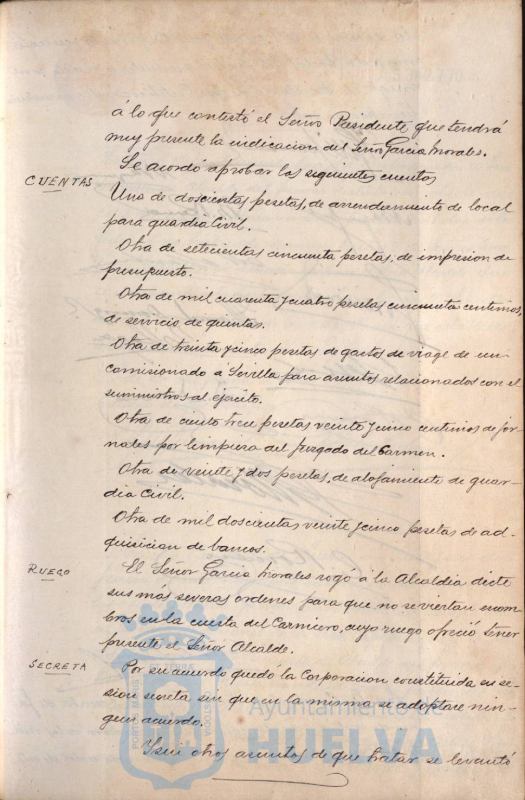 á lo que contestó el Señor Presidente que tendrá
muy presente la indicacion del Señor Garcia Morales.
Se acordó aprobar las siguientes cuentas
CUENTAS
Una de doscientas pesetas, de arrendamiento de local
para guardia Civil.
Otra de setecientas cincuenta pesetas, de impresion de
presupuesto.
Otra de mil cuarenta y cuatro pesetas cincuenta centimos,
de servicio de quintas.
Otra de treinta y cinco pesetas de gastos de viage de un
comisionado a Sevilla para asuntos relacionados con el
suministros al ejército.
Otra de ciento trece pesetas veinte y cinco centimos de jor-
nales por limpieza del Juzgado del Carmen.
Otra de veinte y dos pesetas, de alojamiento de guar-
dia Civil.
Otra de mil doscientas veinte y cinco pesetas de ad-
quisicion de bancos.
RUEGO
El Señor Garcia Morales rogó á la Alcaldia dicte
sus más severas ordenes para que no se viertan escom-
bros en la cuesta del Carnicero, cuyo ruego ofreció tener
presente el Señor Alcalde.
SECRETA
Por su acuerdo quedó la Corporacion constituida en se-
sion secreta sin que en la misma se adoptare nin-
gun acuerdo.
Y sin otros asuntos de que tratar se levantó
Ayuntamiento de
HUELVA